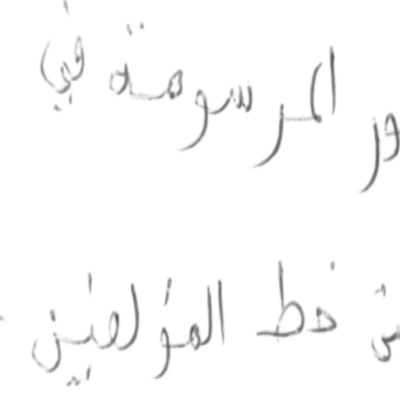 ور المرسومة في
من خط المؤلفين